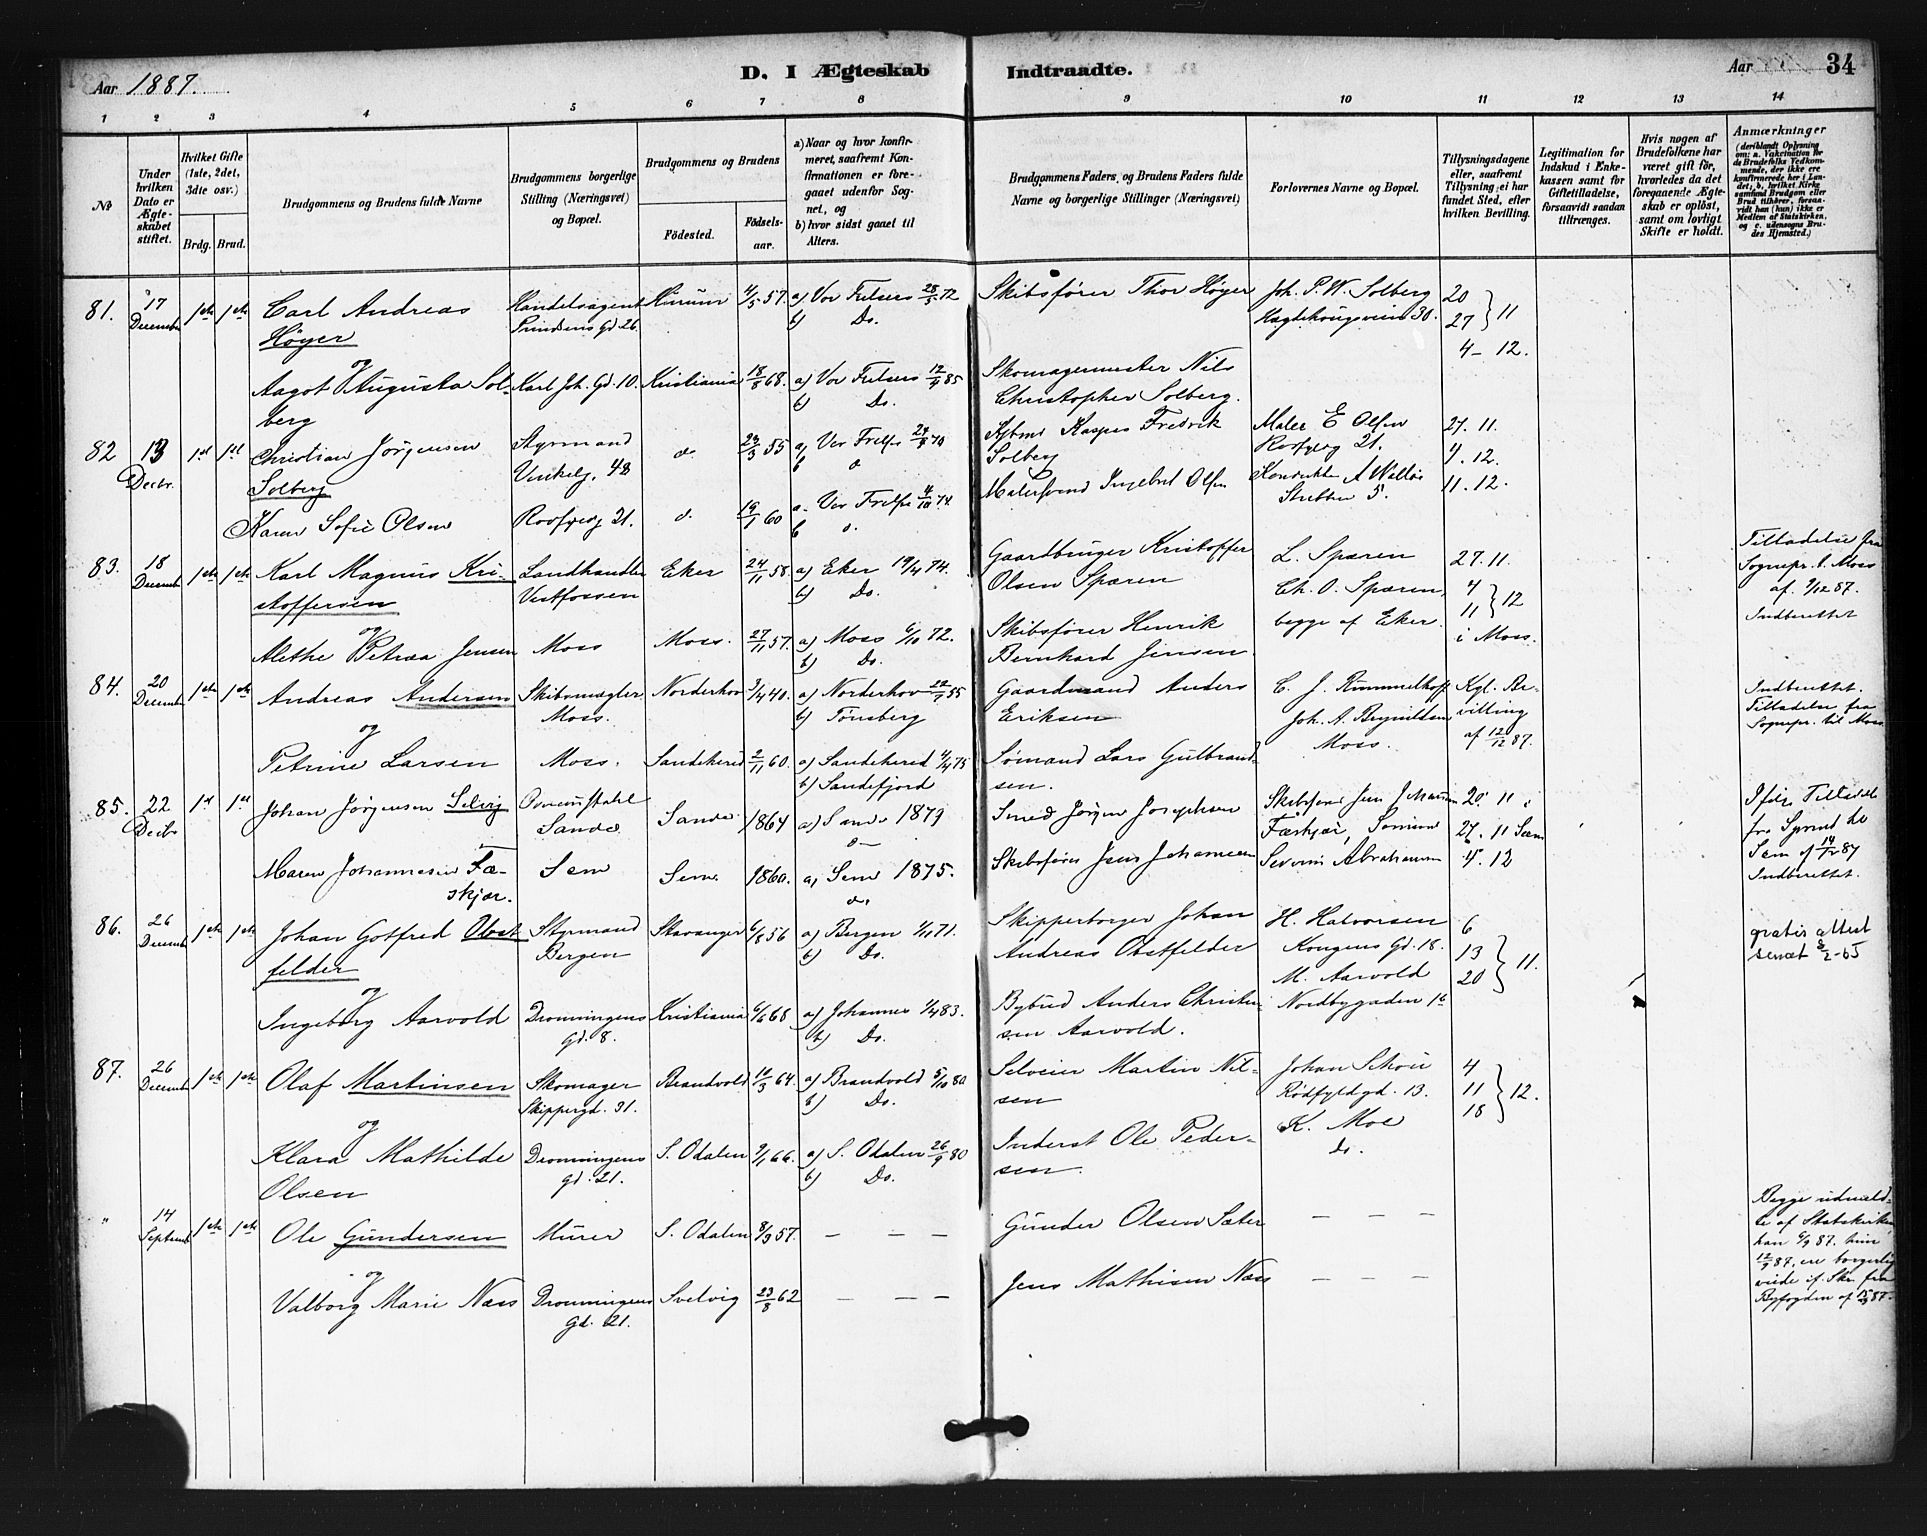 Aar 1887.
D. I Ægteskab Indtraadte.
Aar 34
1 2 3 4 5 6 7 8 9 10 11 12 13 14
No
Under hvilken Dato er Ægteskabet stiftet.
Hvilket Gifte (1ste, 2det, 3die osv.)
Brdg. Brud.
Brudgommens og Brudens fulde Navne
Brudgommens borgerlige Stilling (Næringsvei) og Bopæl.
Brudgommens og Brudens
Fødested.
Fødselsaar.
a) Naar og hvor konfirmeret, saafremt Konfirmationen er foregaaet udenfor Sognet, og
b) hvor sidst gaaet til Alters.
Brudgommens Faders og Brudens Faders fulde Navne og borgerlige Stillinger (Næringsvei)
Forlovernes Navne og Bopæl.
Tillysningsdagene eller, saafremt Tillysning ei har fundet Sted, efter hvilken Bevilling.
Legitimation for Indskud i Enkekassen samt for Giftetilladelse, forsaavidt saadan tiltrænges.
Hvis nogen af Brudefolkene har været gift før, hvorledes da det foregaaende Ægteskab er opløst, samt om lovligt Skifte er holdt.
Anmærkninger (deriblandt Oplysning om: a. Vakcination for de Brudefolks Vedkommende, der ikke ere konfirmerede her i Landet; b. hvilket Kirkesamfund Brudgom eller Brud tilhører, forsaavidt han (hun) ikke er Medlem af Statskirken, og c. udensogns Brudes Hjemsted.)
81. 17 Decemb 1ste 1ste Carl Andreas Høyer Handelsagent Prindsens Gd 26. Hurum 4/5 57. a) Vor Frelsers 28/5 72 b) Do. Skibsfører Thor Høyer Joh. P. W. Solberg Hegdehougsveien 30. 20 27 } 11 4 – 12.
og
Aagot Augusta Solberg Karl Joh. Gd. 10. Kristiania 18/8 68. a) Vor Frelsers 12/4 85 b) Do. Skomagermester Nils Christopher Solberg.
82 13 Decbr. 1st 1st Christian Jörgensen Solberg Styrmand 48 do 29/3 55 a, Vor Frelse 70 b do Kaspar Fredrik Solberg Maler E Olsen 21. 27. 11. 4. 12. 11. 12.
Karen Sofie Olsen 21. do. 19/1 60 a. Vor Frelse 4/10 74 b do. Malersvend Ingebret Olsen A 5.
83. 18 Decemb 1ste 1ste Karl Magnus Kristoffersen Landhandler Vestfossen Eker 24/11 58. a) Eker 19/4 74. b) Do. Gaardbruger Kristoffer Olsen Spæren L. Spæren Ch. O. Spæren, begge af Eker. 27. 11. 4 11 } 12 i Moss. Tilladelse fra Sognepr. t. Moss af /12 87. Indberettet
og
Alethe Petrea Jensen Moss Moss. 27/11 57. a) Moss 6/10 72. b) Do. Skibsfører Henrik Bernhard Jensen.
84. 20 Decemb 1ste 1ste Andreas Andersen Skibsmægler Moss. Norderhov 3/4 40. a) Norderhov 55 b) Tønsberg Gaardmand Anders Eriksen C. J. Rummelhoff Joh. A. Brynildsen Moss. Kgl. Bevilling af 12/12 87. Indberettet. Tilladelse fra Sognepr. til Moss
og
Petrine Larsen Moss. Sandeherred 2/11 60. a) Sandeherred 4/4 75 b) Sandefjord Sømand Lars Gulbrandsen.
85. 22 Decbr 1st 1st Johan Jørgensen Selvig Sande Sande 1864 a) Sande 1879 do Smed Jørgen Josephsen Skibsfører Jens Johannsen Færkjær, 20 11 27. 11 Sem 4. 12 Tilladelse fra til Sem af 14/12 87 Indberettet.
Maren Johannesen Fæskjær. Sem Sem. 1860. a, Sem 1875. do. Skibsfører Jens Johannsen Severin Abrahamsen
86. 26 Decemb 1ste 1ste Johan Gotfred Obstfelder Styrmand Bergen Stavanger 6/8 56 a) Bergen 1/11 71. b) Do. Skipperborger Johan Andreas Obstfelder H. Halvorsen Kongens Gd. 18. M. Aarvold Nordbygaden 1b 6 13 20 } 11. gratis attest sendt 8/2-65
og
Ingeborg Aarvold Dronningens Gd. 8. Kristiania 6/6 68 a) Johannes 1/4 83. b) Do. Bybud Anders Christensen Aarvold.
87. 26 Decemb 1ste 1ste Olaf Martinsen Skomager Skippergd. 31. Brandvold 10/3 64. a) Brandvold 5/10 80 b) Do. Selveier Martin Nilsen Johan Schou Rødfyldgd. 13. K. Moe do. 4 11 18 } 12.
og
Klara Mathilde Olsen Dronningens gd. 21. S. Odalen 9/1 66. a) S. Odalen 26/9 80 b) Do. Inderst Ole Pedersen.
" 14 Septemb 1ste 1ste Ole Gundersen Murer S. Odalen 8/9 57. — — — Gunder Olsen Sæter — — — Begge udmeldte af Statskirken, han 6/9 87. hun 12/9 87, ere borgerlig viede if. Skr. fra Byfogden af 15/9 87.
og
Valborg Marie Næss Dronningens Gd. 21. Svelvig 23/8 62 — — — Jens Mathisen Næss — — —